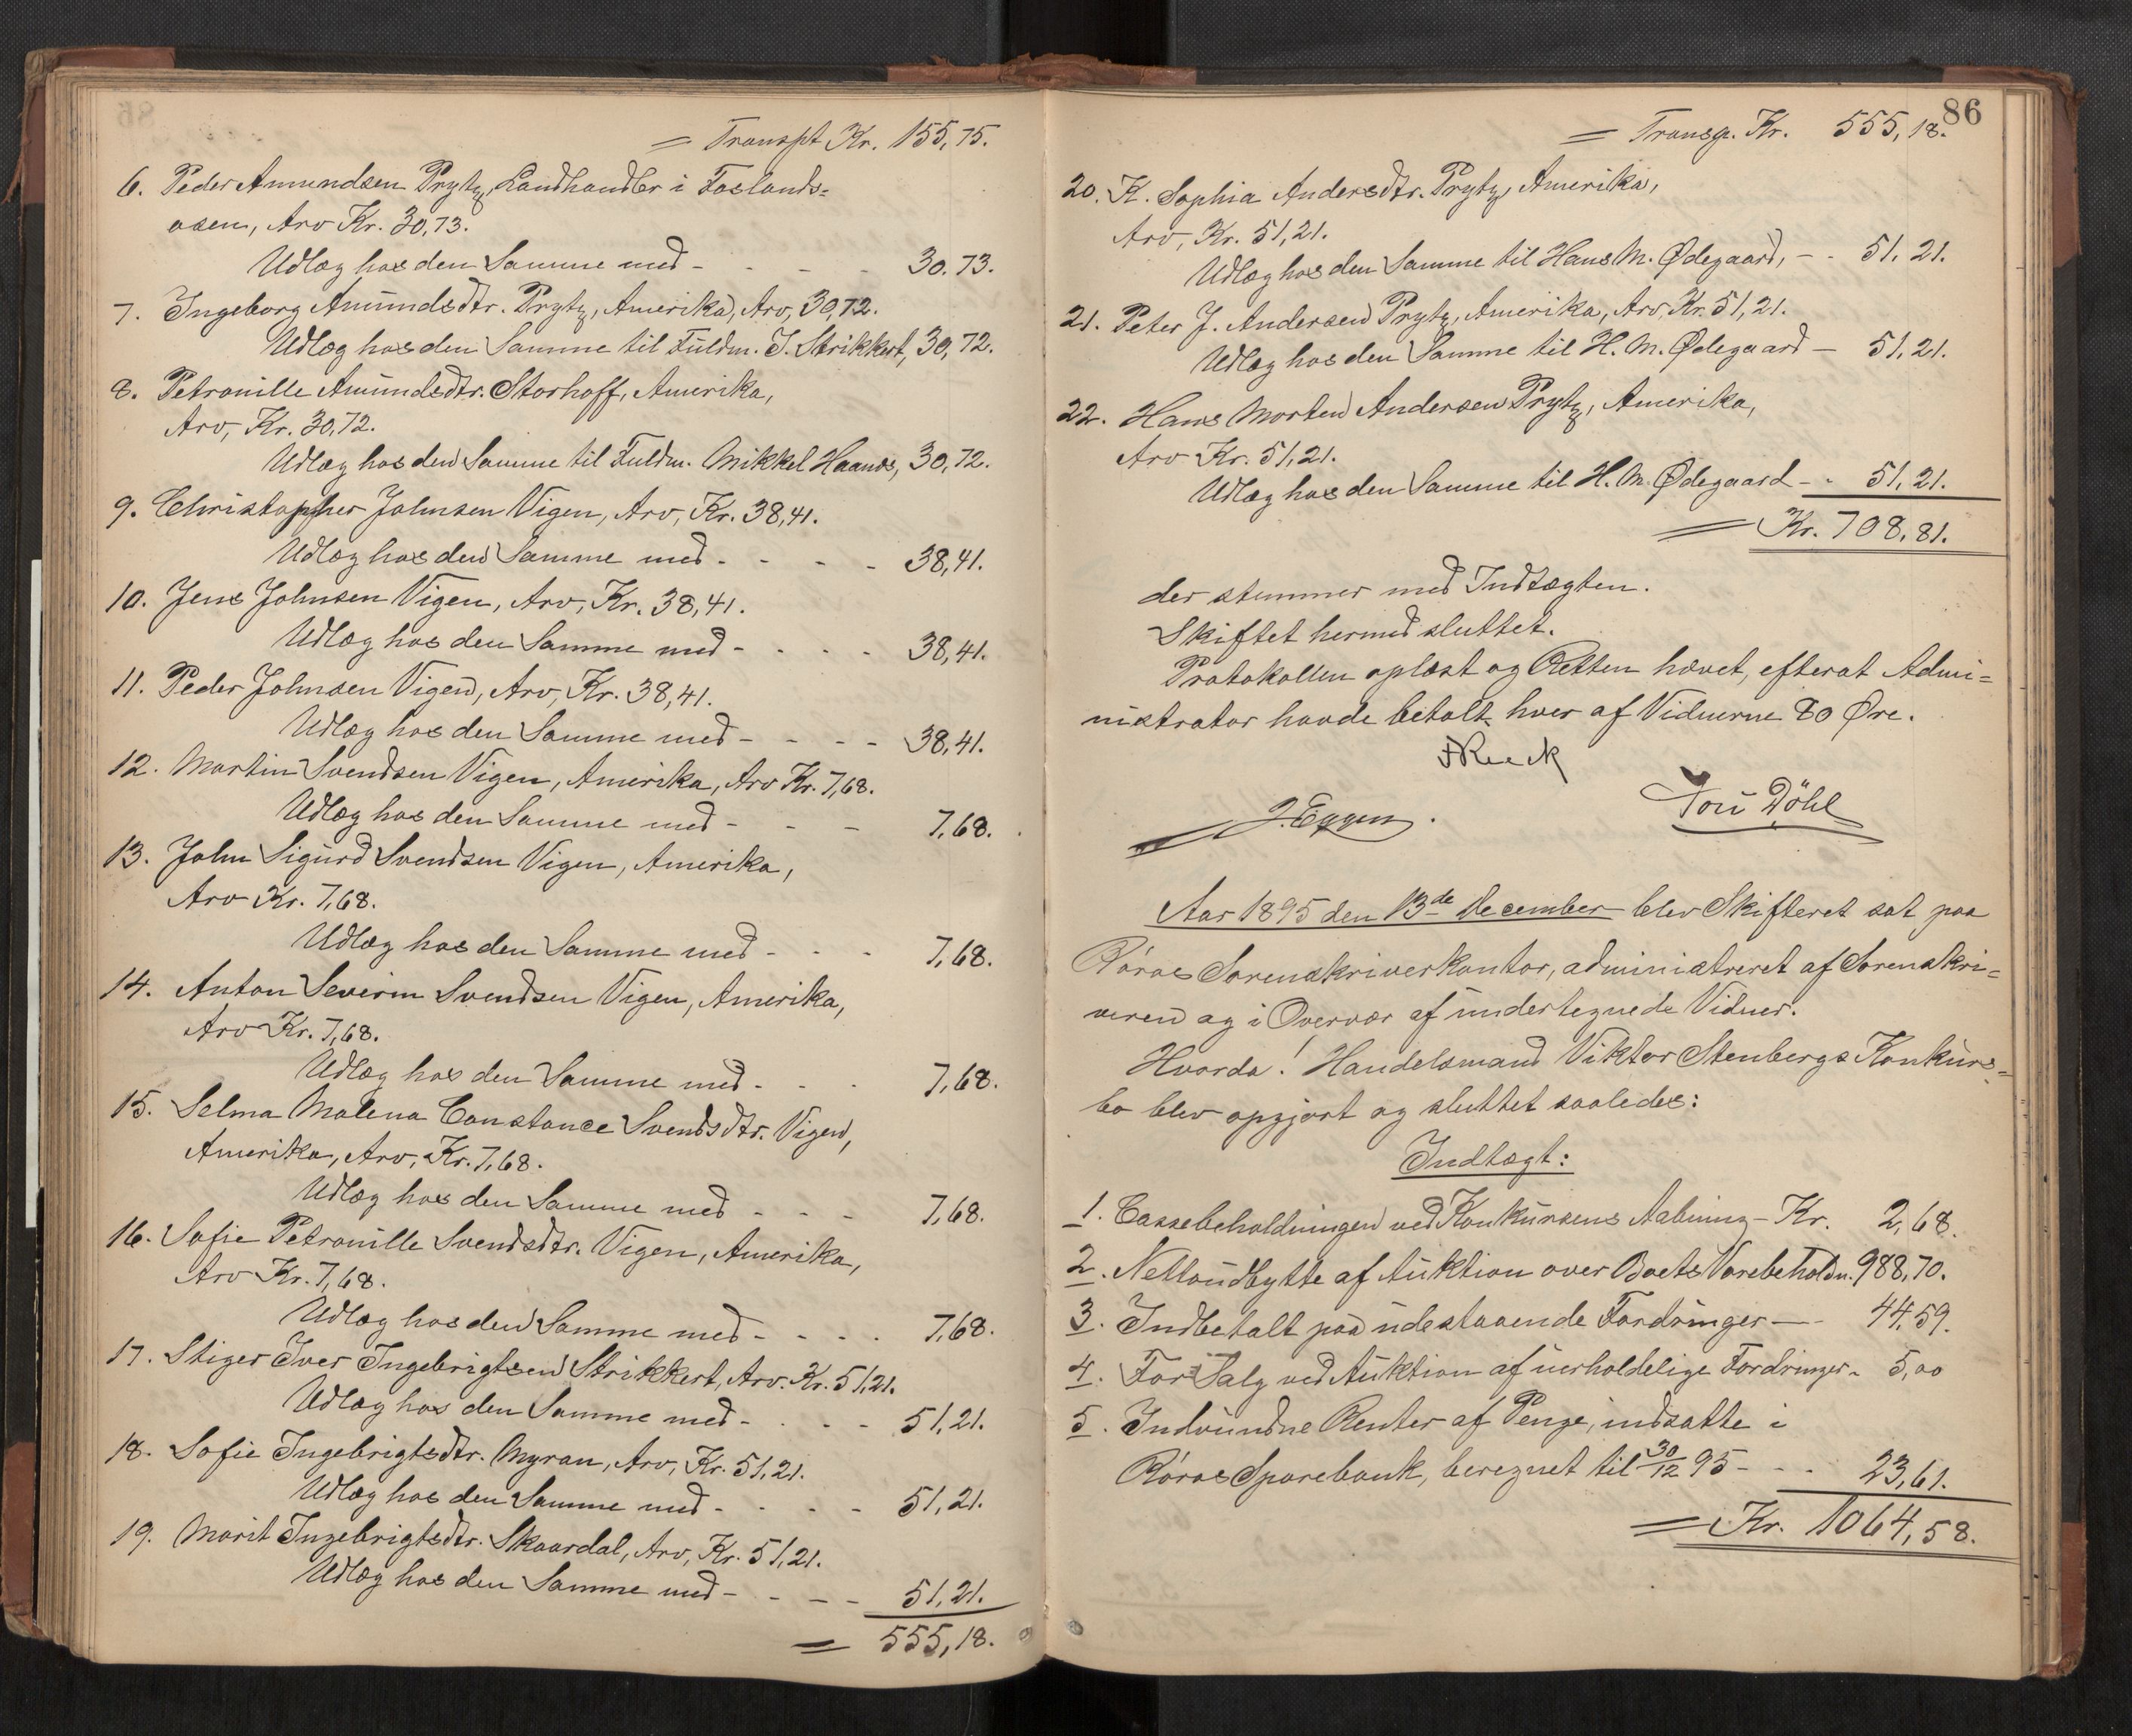 = Transpt Kr. 155,75.
6. Peder Amundsen Prytz, Landhandler i Foslands-
osen, Arv Kr. 30,73.
Udlæg hos den Samme med - - - - 30.73.
7. Ingeborg Amundsdtr. Prytz, Amerika, Arv, 30,72.
Udlæg hos den Samme til Fuldm. I. Strikkert, 30,72.
8. Petronille Amundsdtr. Storhoff, Amerika,
Arv, Kr. 30,72.
Udlæg hos den Samme til Fuldm. Mikkel Haanæs, 30,72.
9. Christopher Johnsen Vigen, Arv, Kr. 38,41.
Udlæg hos den Samme med - - - - 38,41.
10. Jens Johnsen Vigen, Arv, Kr. 38,41.
Udlæg hos den Samme med - - - - 38,41.
11. Peder Johnsen Vigen, Arv, Kr. 38,41.
Udlæg hos den Samme med - - - - 38,41.
12. Martin Svendsen Vigen, Amerika, Arv Kr. 7,68.
Udlæg hos den Samme med - - - 7,68.
13. John Sigurd Svendsen Vigen, Amerika,
Arv Kr. 7,68.
Udlæg hos den Samme med - - - 7,68.
14. Anton Severin Svendsen Vigen, Amerika,
Arv Kr. 7,68.
Udlæg hos den Samme med - - - 7,68.
15. Selma Malena Constance Svendsdtr. Vigen,
Amerika, Arv, Kr. 7,68.
Udlæg hos den Samme med - - - 7,68.
16. Sofie Petronille Svendsdtr. Vigen, Amerika,
Arv Kr. 7,68.
Udlæg hos den Samme med - - - - 7,68.
17. Stiger Iver Ingebrigtsen Strikkert, Arv. Kr. 51,21.
Udlæg hos den Samme med - - - - 51,21.
18. Sofie Ingebrigtsdtr. Myran, Arv, Kr. 51,21.
Udlæg hos den Samme med - - - - 51,21.
19. Marit Ingebrigtsdtr. Skaardal, Arv, Kr. 51,21.
Udlæg hos den Samme med - - - - 51,21.
= 555,18.
86
= Transp. Kr. 555,18.
20. K. Sophia Andersdtr. Prytz, Amerika,
Arv, Kr. 51,21.
Udlæg hos den Samme til Hans M. Ødegaard, - - 51,21.
21. Peter J. Andersen Prytz, Amerika, Arv, Kr. 51,21.
Udlæg hos den Samme til H. M. Ødegaard - 51,21.
22. Hans Morten Andersen Prytz, Amerika,
Arv Kr. 51,21.
Udlæg hos den Samme til H. M. Ødegaard - - 51,21.
= Kr. 708,81.
der stemmer med Indtægten.
Skiftet hermed sluttet.
Protokollen oplæst og Retten hævet, efterat Admi=
nistrator havde betalt hver af Vidnerne 80 Øre.
J. Eggen.
Aar 1895 den 13de December blev Skifteret sat paa
Røros Sorenskriverkontor, administreret af Sorenskri=
veren og i Overvær af undertegnede Vidner.
Hvorda! Handelsmand Viktor Stenbergs Konkurs=
bo blev opgjort og sluttet saaledes:
Indtægt:
1. Cassebeholdningen ved Konkursens Aabning - Kr. 2,68.
2. Nettoudbytte af Auktion over Boets Varebeholdn. 988,70.
3. Indbetalt paa udestaaende Fordringer - - 44,59.
4. For Salg ved Auktion af uerholdelige Fordringer - 5,00
5. Indvundne Renter af Penge, indsatte i
Røros Sparebank, beregnet til 30/12 95 - - - 23,61.
= Kr. 1064,58.